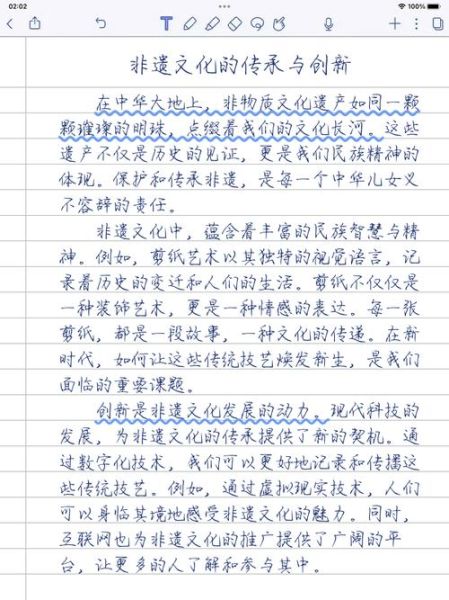 02:02
100%
T
非遗文化的传承与创新
在中华大地上，非物质文化遗产如同一颗
颗璀璨的明珠，点缀着我们的文化长河。这些
遗产不仅是历史的见证，更是我们民族精神的
体现。保护和传承非遗，是每一个中华儿女义
不容辞的责任。
非遗文化中，蕴含着丰富的民族智慧与精
神。例如，剪纸艺术以其独特的视觉语言，记
录着历史的变迁和人们的生活。剪纸不仅仅是
一种装饰艺术，更是一种情感的表达。每一张
剪纸，都是一段故事，一种文化的传递。在新
时代，如何让这些传统技艺焕发新生，是我们
面临的重要课题。
创新是非遗文化发展的动力。现代科技的
发展，为非遗文化的传承提供了新的契机。通
过数字化技术，我们可以更好地记录和传播这
些传统技艺。例如，通过虚拟现实技术，人们
可以身临其境地感受非遗文化的魅力。同时，
互联网也为非遗文化的推广提供了广阔的平
台，让更多的人了解和参与其中。